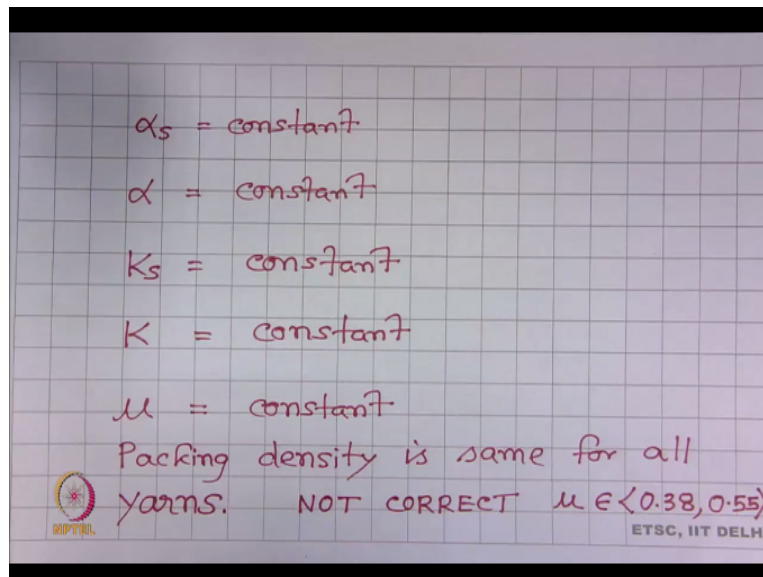 αs = constant
α = constant
Ks = constant
K = constant
μ = constant
Packing density is same for all
yarns. NOT CORRECT μ ∈ <0.38, 0.55)
NPTEL
ETSC, IIT DELH